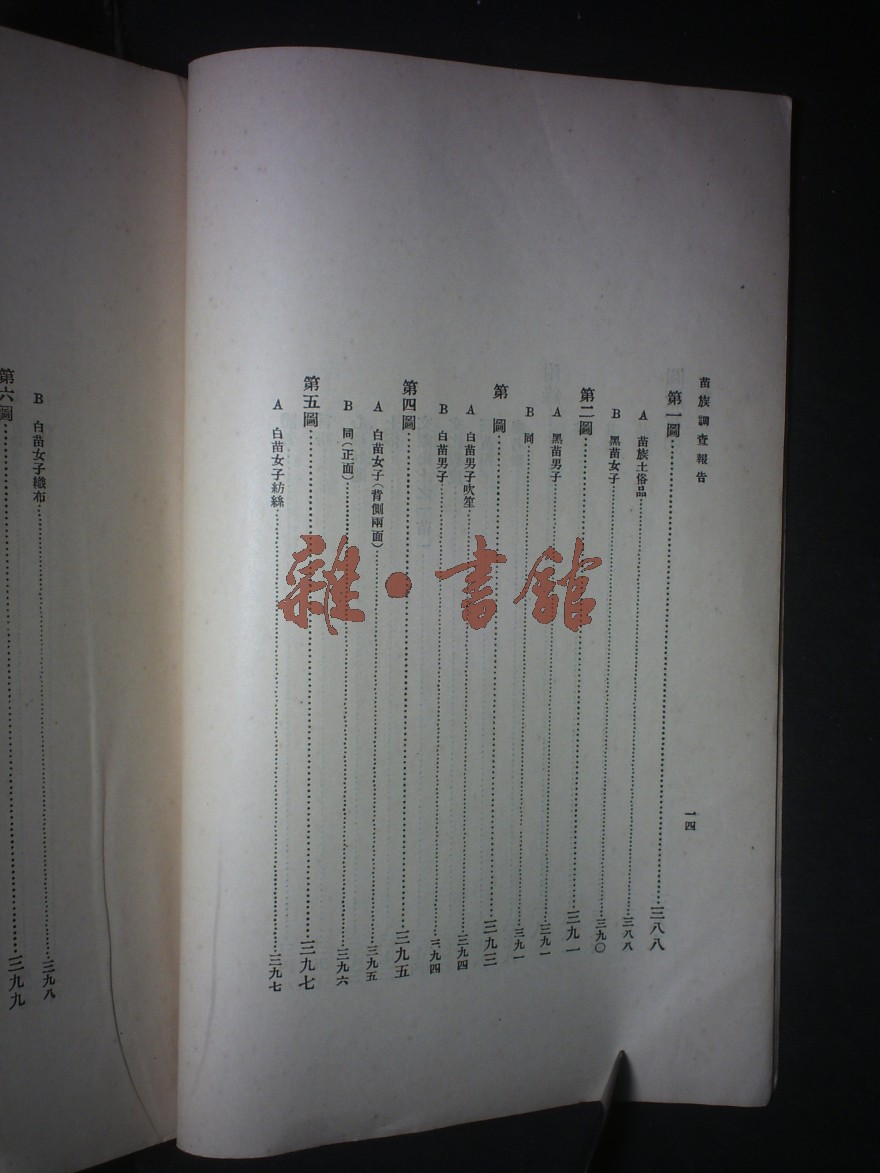 苗族調查報告
一四
第一圖……三八八
A 苗族土俗品……三八八
B 黑苗女子……三九〇
第二圖……三九一
A 黑苗男子……三九一
B 同……三九一
第 圖……三九三
A 白苗男子吹笙……三九四
B 白苗男子……三九四
第四圖……三九五
A 白苗女子(背側兩面)……三九五
B 同(正面)……三九六
第五圖……三九七
A 白苗女子紡絲……三九七
B 白苗女子織布……三九八
第六圖……三九九
雜·書館